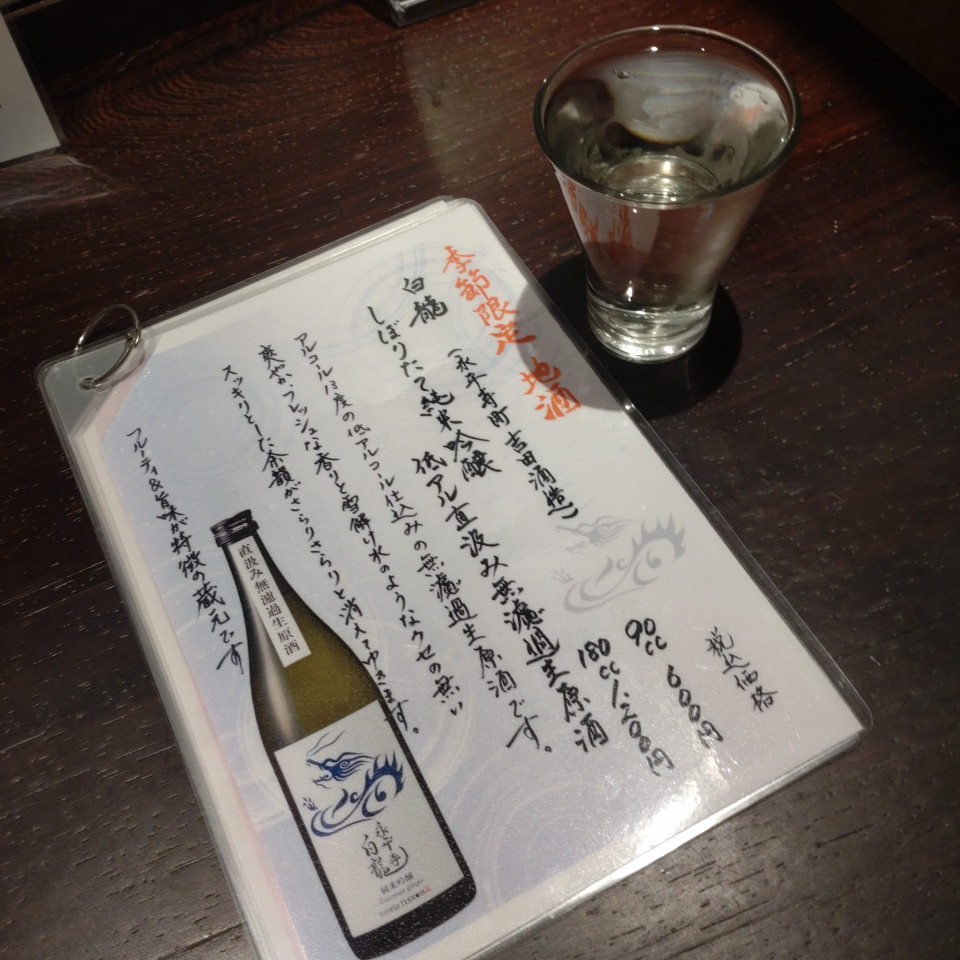 季節限定 地酒
白龍 (永平寺町 吉田酒造)
しぼりたて純米吟醸 低アル直汲み無濾過生原酒
税込価格
90cc 600円
180cc 1,200円
アルコール13度の低アルコール仕込みの無濾過生原酒です。
爽やか、フレッシュな香りと雪解け水のようなクセの無い
スッキリとした余韻がさらりさらりと消えてゆきます。
フルーティ&旨味が特徴の蔵元です
直汲み無濾過生原酒
永平寺
白龍
純米吟醸
Junmai ginjo